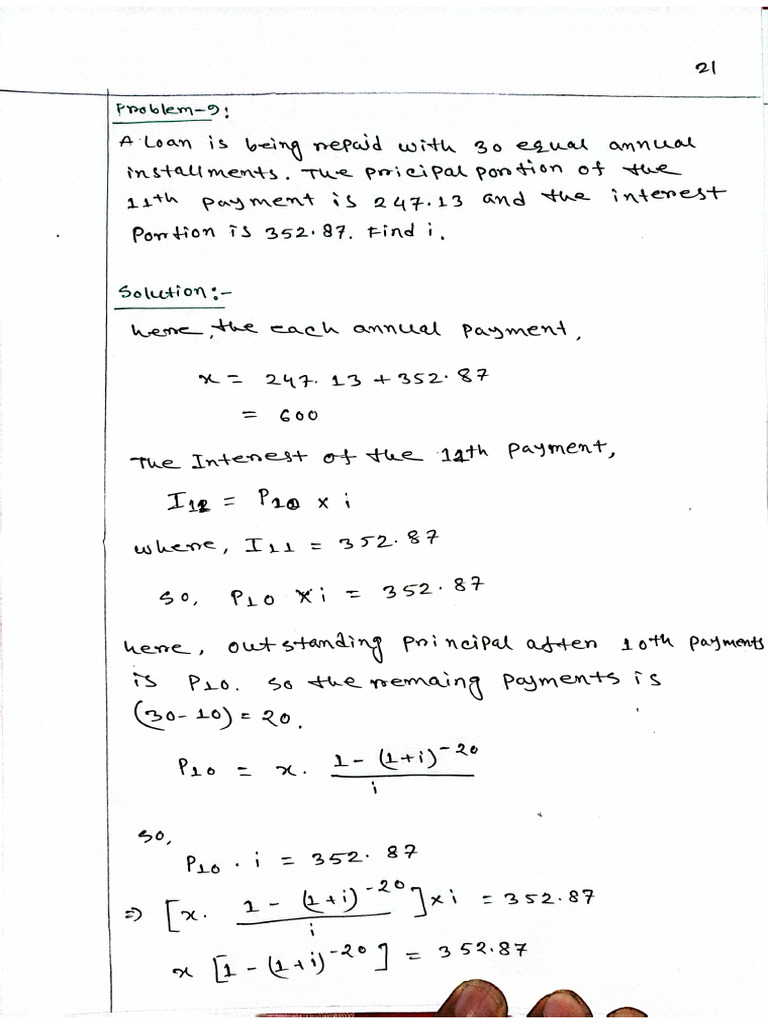 21
Problem-9:
A Loan is being repaid with 30 equal annual
installments. The pricipal portion of the
11th payment is 247.13 and the interest
Portion is 352.87. Find i.
Solution:-
here, the each annual payment,
x = 247.13 + 352.87
= 600
The Interest of the 11th payment,
I11 = P10 x i
where, I11 = 352.87
so, P10 x i = 352.87
here, outstanding principal after 10th payments
is P10. so the remaing payments is
(30-10) = 20.
P10 = x. 1-(1+i)^-20 / i
so,
P10 . i = 352.87
⇒ [x. 1-(1+i)^-20 / i] x i = 352.87
x [1-(1+i)^-20] = 352.87